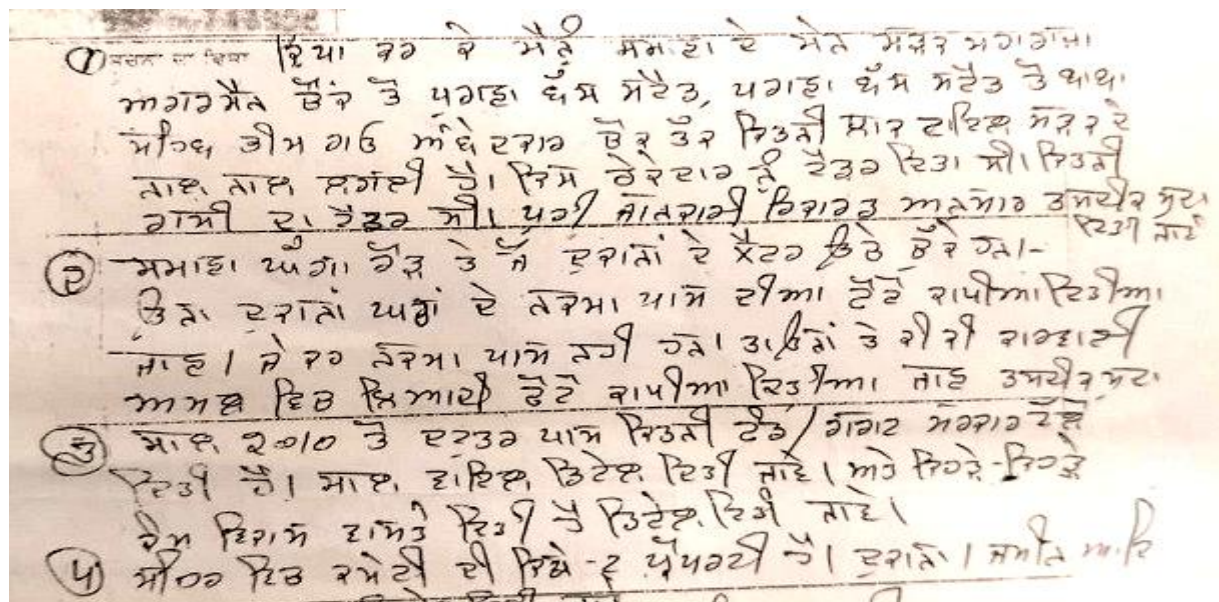 ① ਕਿਰਪਾ ਕਰ ਕੇ ਮੈਨੂੰ ਸਮਾਣਾ ਦੇ ਮੇਨ ਸੜਕ
ਅਗਰਸੈਨ ਚੌਂਕ ਤੋਂ ਪੁਰਾਣਾ ਬੱਸ ਸਟੈਡ, ਪੁਰਾਣਾ ਬੱਸ ਸਟੈਡ ਤੋਂ ਬਾਬਾ
ਸਾਹਿਬ ਭੀਮ ਰਾਓ ਅੰਬੇਦਕਾਰ ਚੌਂਕ ਤੱਕ ਕਿਤਨੀ ਟਾਇਲ ਸੜਕ ਦੇ
ਨਾਲ ਨਾਲ ਲਗਣੀ ਹੈ। ਕਿਸ ਠੇਕੇਦਾਰ ਨੂੰ ਟੈਡਰ ਦਿਤਾ ਸੀ। ਕਿਤਨੀ
ਰਾਸੀ ਦਾ ਟੈਡਰ ਸੀ। ਪੂਰੀ ਜਾਨਕਾਰੀ ਰਿਕਾਰਡ ਅਨੁਸਾਰ ਤਸਦੀਕ ਸੁਦਾ
ਦਿਤੀ ਜਾਵੇ
② ਸਮਾਣਾ ਘੱਗਾ ਰੋਡ ਤੇ ਜੋ ਦੁਕਾਨਾਂ ਦੇ ਸੈਟਰ ਉਚੇ ਚੁੱਕੇ ਹਨ।-
ਉਨਾ ਦੁਕਾਨਾਂ ਘਰਾਂ ਦੇ ਨਕਸਾ ਪਾਸ ਦੀਆ ਫੋਟੋ ਕਾਪੀਆ ਦਿਤੀਆ
ਜਾਣ। ਜੇ ਕਰ ਨਕਸਾ ਪਾਸ ਨਹੀ ਹਨ। ਤਾਂ ਉਨਾਂ ਤੇ ਕੀ ਕੀ ਕਾਰਵਾਈ
ਅਮਲ ਵਿਚ ਲਿਆਦੀ ਫੋਟੋ ਕਾਪੀਆ ਦਿਤੀਆ ਜਾਣ ਤਸਦੀਕ ਸੁਦਾ
③ ਸਾਲ 2010 ਤੋਂ ਦਫਤਰ ਪਾਸ ਕਿਤਨੀ ਫੰਡ/ਗਰਾਂਟ ਸਰਕਾਰ ਵੱਲੋਂ
ਦਿਤੀ ਹੈ। ਸਾਲ ਵਾਇਜ ਡਿਟੇਲ ਦਿਤੀ ਜਾਵੇ। ਅਤੇ ਕਿਹੜੇ-ਕਿਹੜੇ
ਕੰਮ ਵਿਕਾਸ ਵਾਸਤੇ ਦਿਤੀ ਹੈ ਡਿਟੇਲ ਦਿਤੀ ਜਾਵੇ।
ਸਹਿਰ ਵਿਚ ਕਮੇਟੀ ਦੀ ਕਿਥੇ-2 ਪ੍ਰੋਪਰਟੀ ਹੈ। ਦੁਕਾਨਾ। ਜਮੀਨ ਆਦਿ